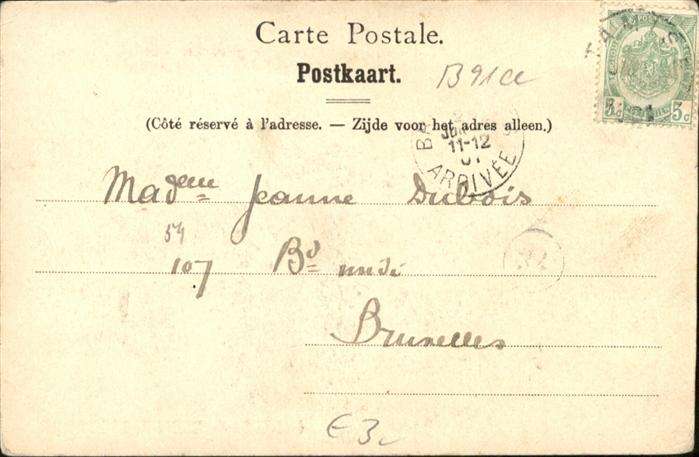 Carte Postale.
Postkaart.
B91ce
(Côté réservé à l'adresse. — Zijde voor het adres alleen.)
11-12
ARRIVÉE
5 c
Mademe Jeanne Dubois
54
107 Bd midi
Bruxelles
€3